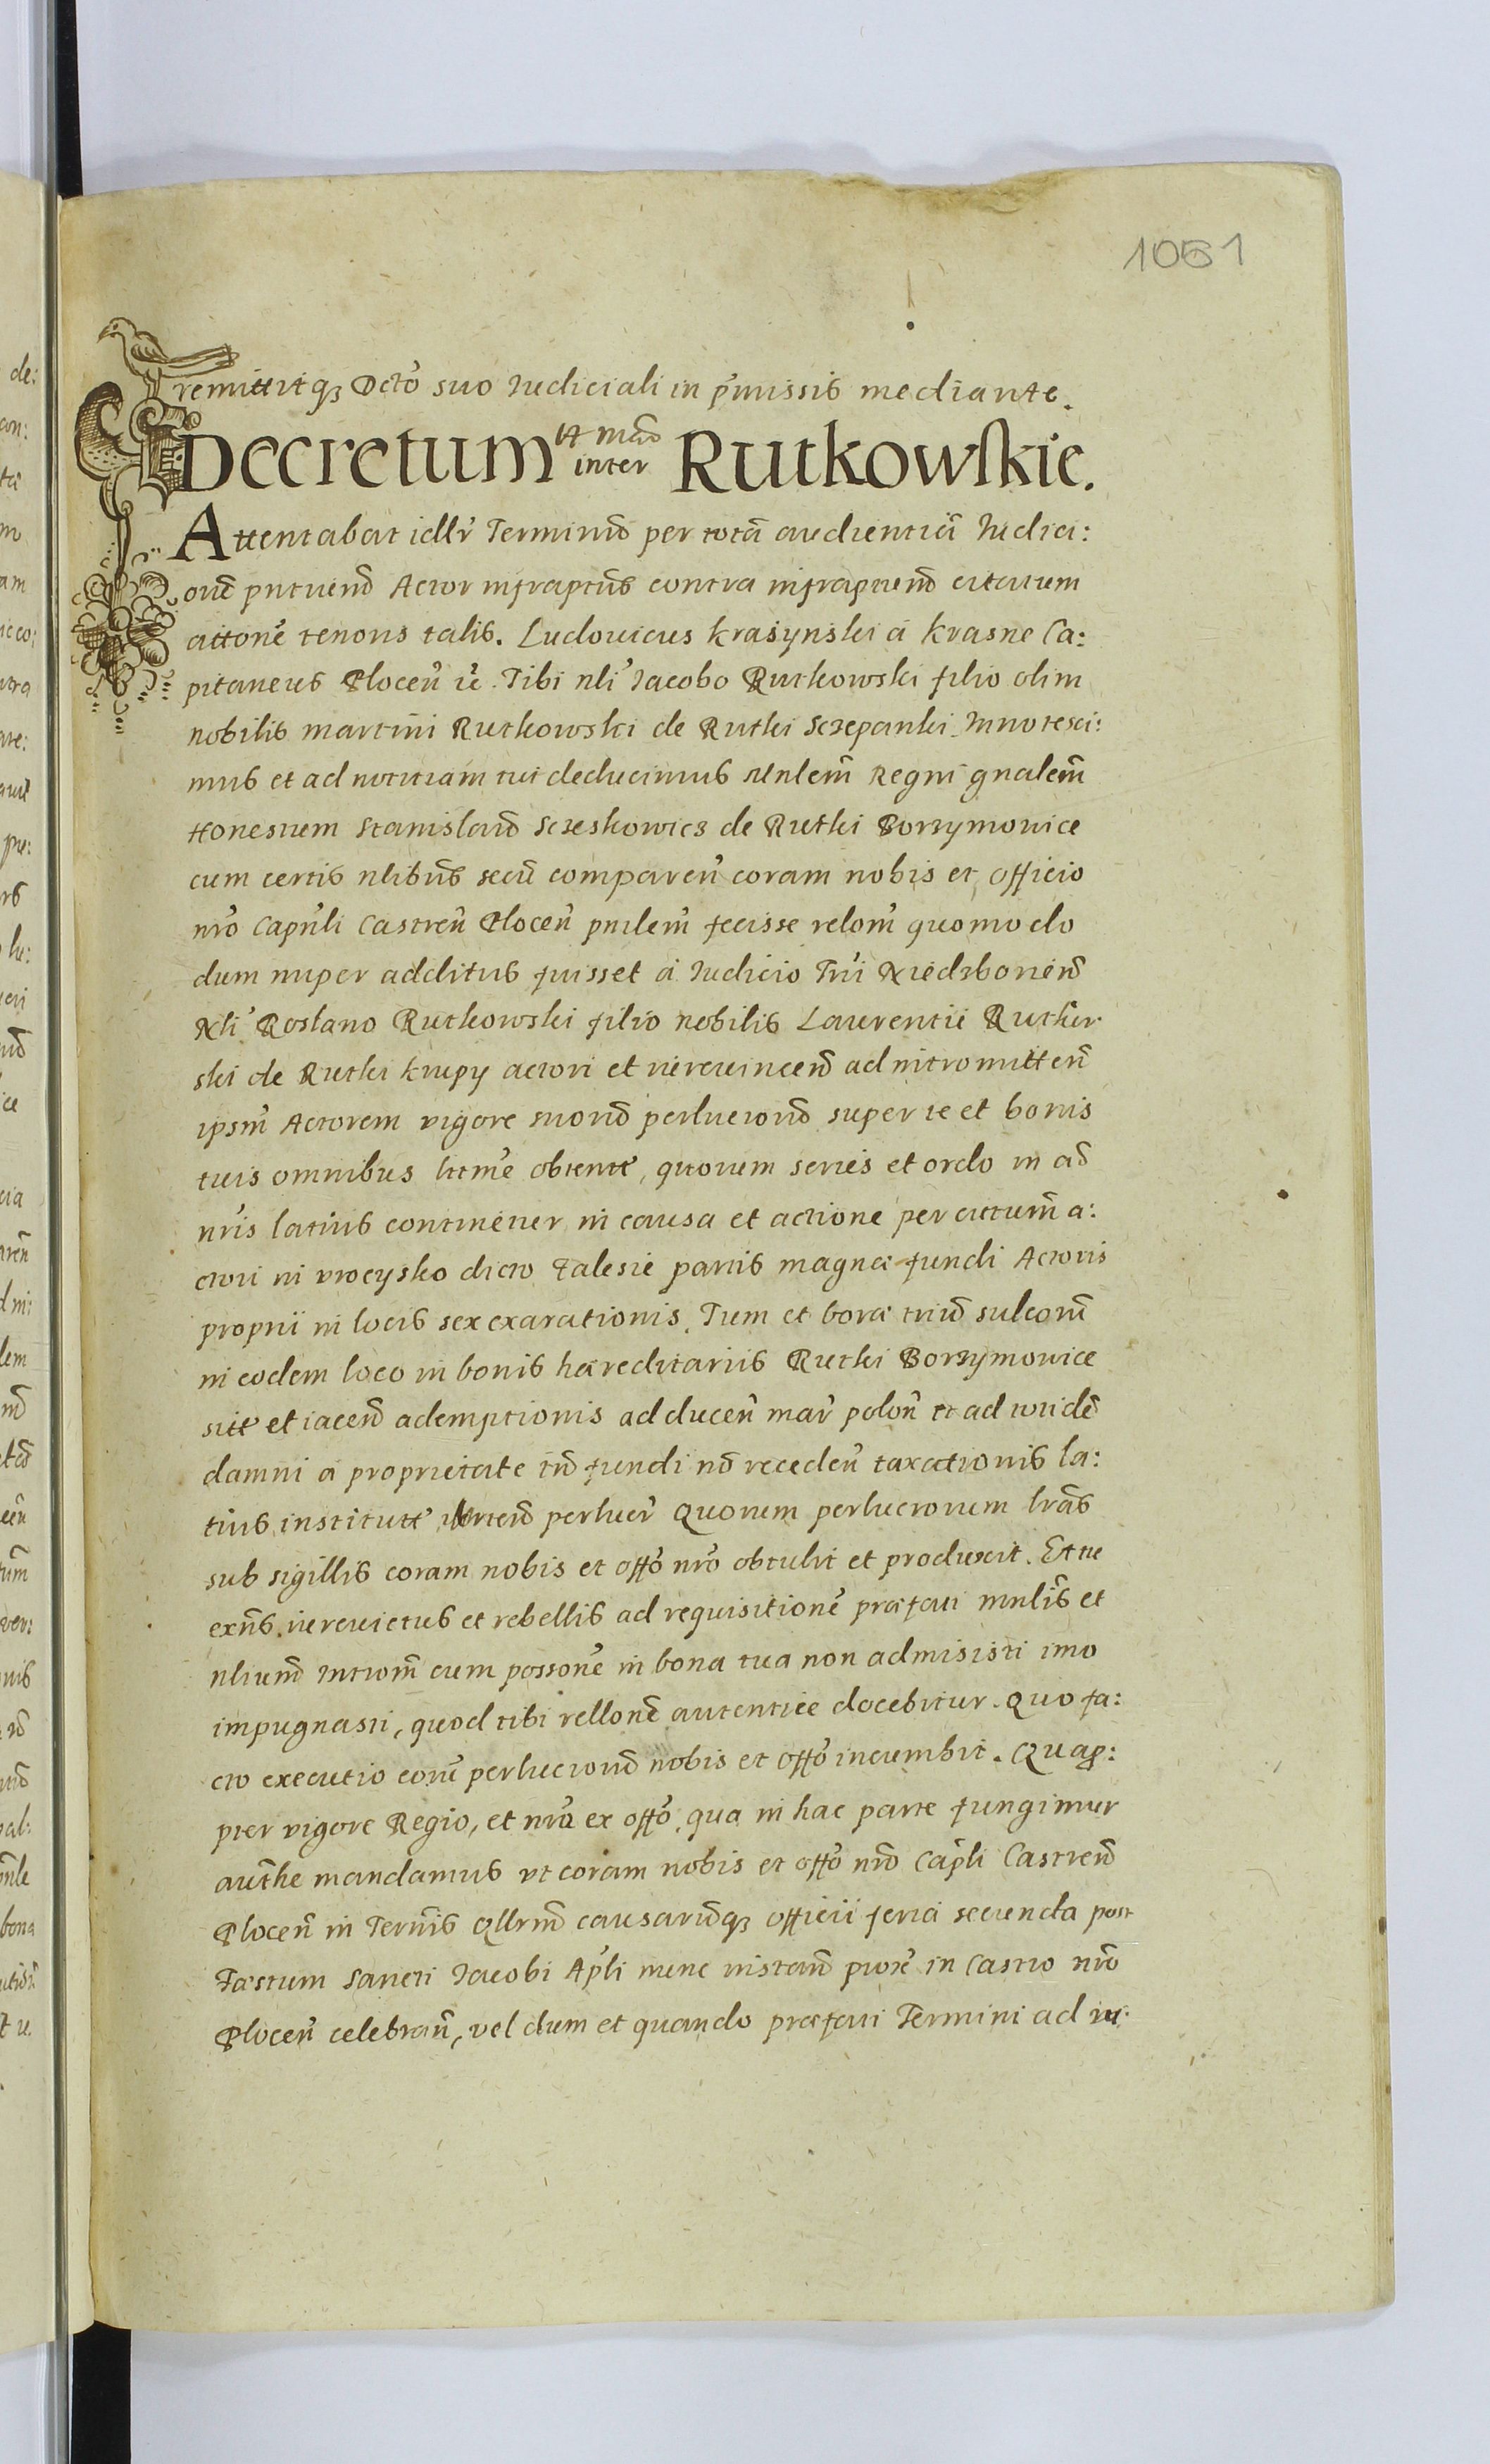 1051
remittitq₃ Dctō suo Iudiciali in p̄missis mediante.
Decretum et mād inter Rutkowskie.
Attentabat iddr̄ Terminū per totā audientiā Iudici:
orū pntuend Actor infraptus contra infraptuend citatum
cittonē tenoris talis. Ludouicus Krasynski a Krasne Ca:
pitaneus Plocen̄ ic̄. Tibi nli Iacobo Rutkowski filio olim
nobilis martini Rutkowski de Rutki Sczepanki. Innotesci:
mus et ad notitiam tui deducimus Mnlem̄ Regni gnalem̄
Honestum Stanislaū Sczeskowicz de Rutki Borzymowice
cum certis nlibūs secū comparen̄ coram nobis et officio
nrō Capnli Castren̄ Plocen̄ pnilem̄ fecisse relom̄ quomodo
dum nuper additus fuisset a Iudicio Trri Niedzborien̄
Nli Roslano Rutkowski filio nobilis Laurentii Rutkow
ski de Rutki Krupy actori et iureuincen̄ ad intromitten̄
ipsm̄ Actorem vigore suorū perlucrorū super te et bonis
tuis omnibus litm̄e obtent, quorum series et ordo in ac̄
nris latius continetur in causa et actione per citatum a:
ctori in vrocysko dicto Zalesie partis magnæ fundi Actoris
proprii in locis sex exarationis. Tum et boræ triū sulcorū
in eodem loco in bonis hæreditariis Rutki Borzymowice
sitt et iacen̄ ademptionis ad ducen̄ mar̄ polon̄ et ad toridē
damni a proprietate tn̄ fundi nō receden̄ taxationis la:
tius institutt perlucr̄ Quorum perlucrorum lrās
sub sigillis coram nobis et offō nrō obtulit et produxit. Et tu
exn̄s iureuictus et rebellis ad requisitionē præfati mnlis et
nlium̄ Introm̄ eum possonē in bona tua non admisisti imo
impugnasti, quod tibi rellonē autentice docebitur. Quo fa:
cto executio eorū perlucrorū nobis et offō incumbit. Quap̄:
pter vigore Regio, et nrā ex offō, qua in hac parte fungimur
aut̄he mandamus vt coram nobis et offō nrō Cap̄li Castren̄
Plocen̄ in Termis Qllrm̄ causarūq₃ officii feria secunda post
Fæstum Sancti Iacobi Ap̄li nunc instan̄ proxē in Castro nrō
Plocen̄ celebran̄, vel dum et quando præfati Termini ad iu: